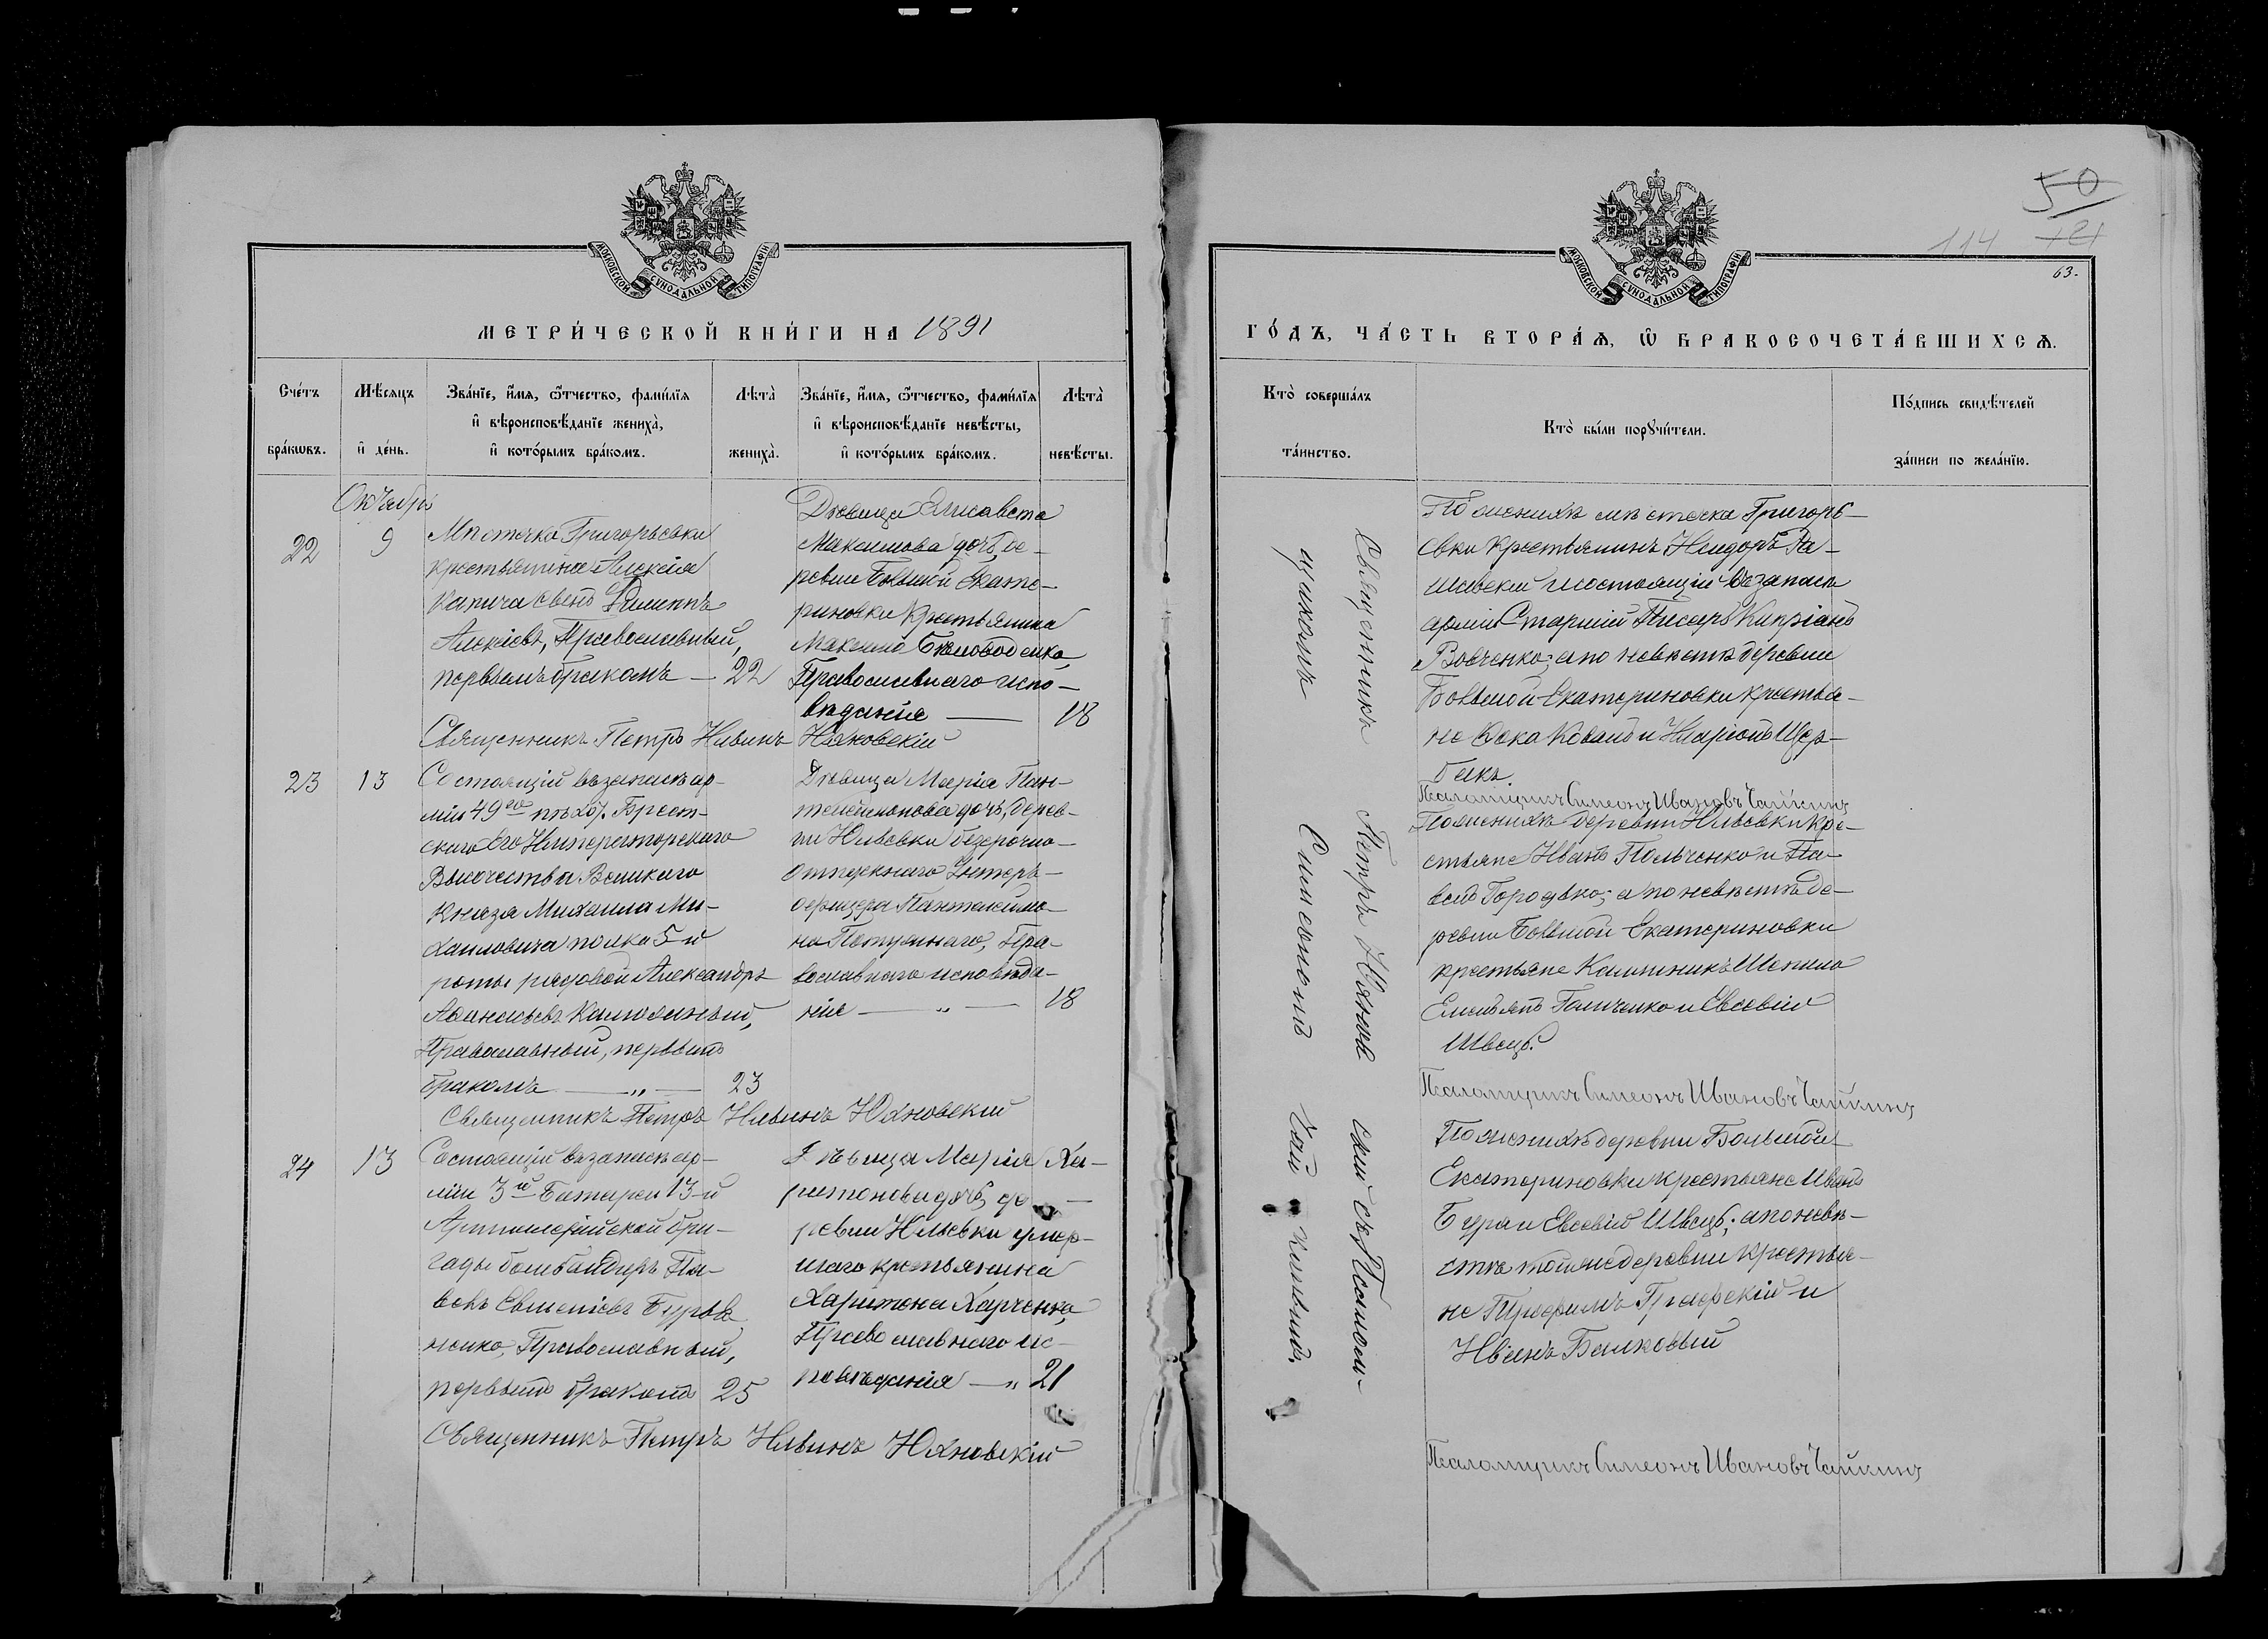 МОСКОВСКОЙ СѴНОДАЛЬНОЙ ТИПОГРАФІИ
МЕТРИ́ЧЕСКОЙ КНИ́ГИ НА 1891
Сче́тъ бра́кѡвъ.
Мѣ́сяцъ и҆ де́нь.
Зва́нїе, и҆́мѧ, ѻ҆́тчество, фами́лїѧ
и҆ вѣроисповѣ́данїе жениха̀,
и҆ кото́рымъ бра́комъ.
Лѣта̀ жениха̀.
Зва́нїе, и҆́мѧ, ѻ҆́тчество, фами́лїѧ
и҆ вѣроисповѣ́данїе невѣ́сты,
и҆ кото́рымъ бра́комъ.
Лѣта̀ невѣ́сты.
Октября
22
9
Мѣстечка Григорьевки
крестьянина Алексія
сынъ Филиппъ
Алексіевъ, Православный,
первымъ бракомъ — 22
Дѣвица Елисавета
Максимова дочь, де-
ревни Большой Екате-
риновки крестьянина
Максима Бѣловоденка,
Православнаго испо-
вѣданія — 18
Священникъ Петръ Ильинъ Юхновскій
23
13
Состоящій въ запасѣ ар-
міи 49го пѣхот. Брест-
скаго Его Императорскаго
Высочества Великаго
Князя Михаила Ми-
хаиловича полка 5-й
роты рядовой Александръ
Аѳанасьевъ
Православный, первымъ
бракомъ — „ — 23
Дѣвица Марія Пан-
телеимонова дочь, дерев-
ни Юльевки безсрочно-
отпускнаго Унтеръ-
офицера Пантелеимо-
на Пра-
вославнаго исповѣда-
нія — „ — 18
Священникъ Петръ Ильинъ Юхновскій
24
13
Состоящій въ запасѣ ар-
міи 3й Батареи 13-й
Артиллерійской бри-
гады бомбардиръ Па-
велъ
Православный,
первымъ бракомъ 25
Дѣвица Марія Ха-
ритонова дочь, де-
ревни Юльевки умер-
шаго крестьянина
Харитона Харченка,
Православнаго ис-
повѣданія — „ 21
Священникъ Петръ Ильинъ Юхновскій
50
121
114
63.
МОСКОВСКОЙ СѴНОДАЛЬНОЙ ТИПОГРАФІИ
ГО́ДЪ, ЧА́СТЬ ВТОРА́Ѧ, Ѡ҆ БРАКОСОЧЕТА́ВШИХСѦ.
Кто̀ соверша́лъ та́инство.
Кто̀ бы́ли порꙋчи́тели.
По́дпись свидѣ́телей за́писи по жела́нїю.
Священникъ Петръ Юхновскій съ Псалом-
щикомъ Симеономъ Чайкинымъ.
По женихѣ мѣстечка Григорь-
евки крестьянинъ
и состоящій въ запасѣ
арміи Старшій Писарь Кипріанъ
Вовченко; а по невѣстѣ деревни
Большой-Екатериновки крестья-
не и Иларіонъ Щер-
бакъ.
Псаломщикъ Симеонъ Ивановъ Чайкинъ
По женихѣ деревни Юльевки кре-
стьяне Иванъ и Па-
велъ а по невѣстѣ де-
ревни Большой Екатериновки
крестьяне Калинникъ Шепило
Емельянъ и Евсевій
Швецъ.
Псаломщикъ Симеонъ Ивановъ Чайкинъ
По женихѣ деревни Большой
Екатериновки крестьяне Иванъ
Бура и Евсевій Швецъ; а по невѣ-
стѣ той же деревни крестья-
не Трофимъ и
Иванъ
Псаломщикъ Симеонъ Ивановъ Чайкинъ